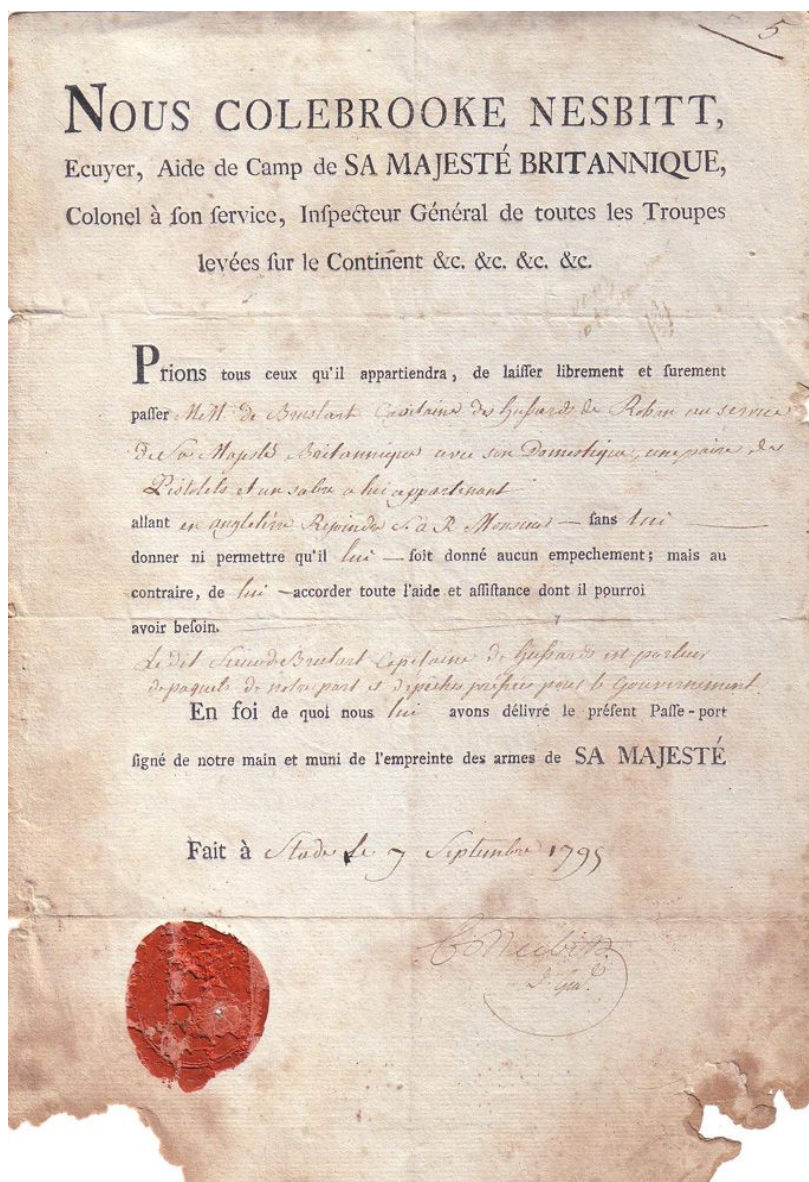 5
NOUS COLEBROOKE NESBITT,
Ecuyer, Aide de Camp de SA MAJESTÉ BRITANNIQUE,
Colonel à ſon ſervice, Inſpecteur Général de toutes les Troupes
levées ſur le Continent &c. &c. &c. &c.
Prions tous ceux qu'il appartiendra, de laiſſer librement et ſurement
paſſer de Bruslart Capitaine des huſsards de Rohan au service
de Sa Majesté Britannique avec son Domestique, une paire de
Pistolets et un sabre a lui appartenant
allant en angleterre Rejoindre S. A R Monsieur — ſans lui —
donner ni permettre qu'il lui — ſoit donné aucun empechement; mais au
contraire, de lui — accorder toute l'aide et aſſiſtance dont il pourroi
avoir beſoin.
Le dit Sieur de Bruslart Capitaine de huſsards est porteur
de paquets de notre part et dépêches pour le Gouvernement.
En foi de quoi nous lui avons délivré le préſent Paſſe-port
ſigné de notre main et muni de l'empreinte des armes de SA MAJESTÉ
Fait à Stade Le 7 Septembre 1795
Nesbitt